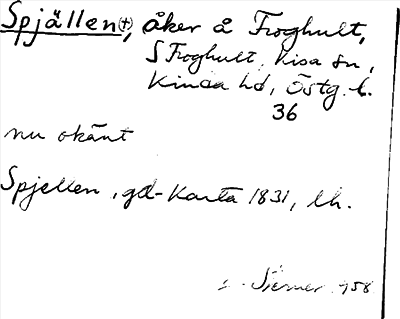 Spjällen (+), åker å Froghult,
S Froghult, Kisa sn,
Kinda hd, Östg. l.
36
nu okänt
Spjellen, gd-Karta 1831, lh.
1958